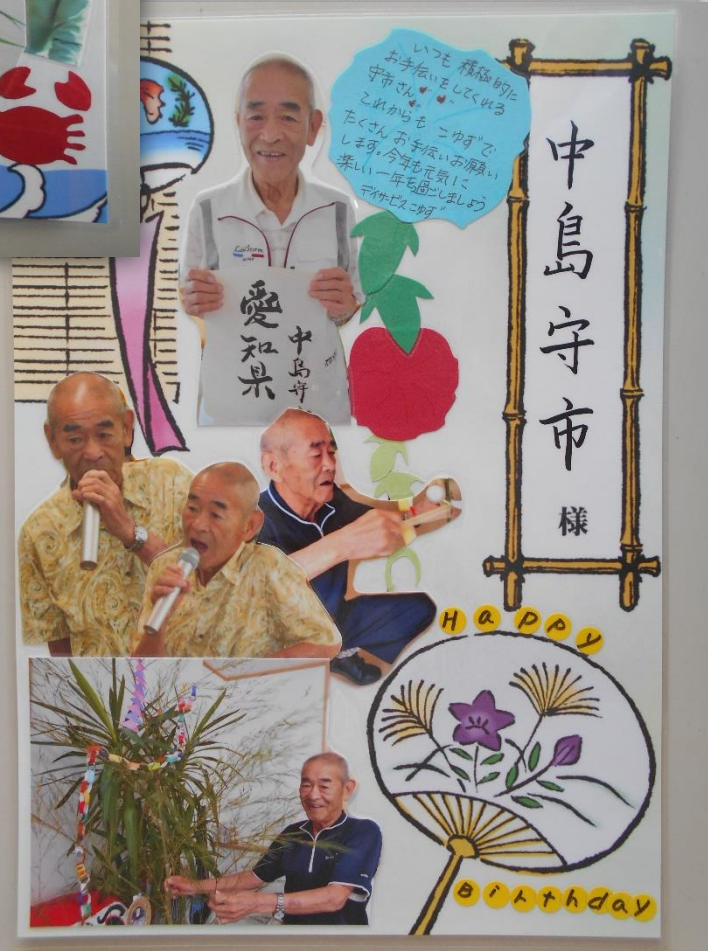 いつも 積極的に
お手伝いをしてくれる
守市さん
これからも こゆずで
たくさんお手伝いお願い
します。今年も元気に
楽しい一年を過ごしましょう
デイサービスこゆず
中島守市様
愛知県
中島守
Happy
Birthday